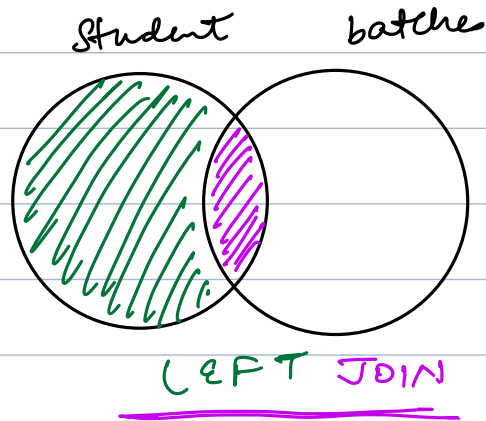 Student batches
LEFT JOIN